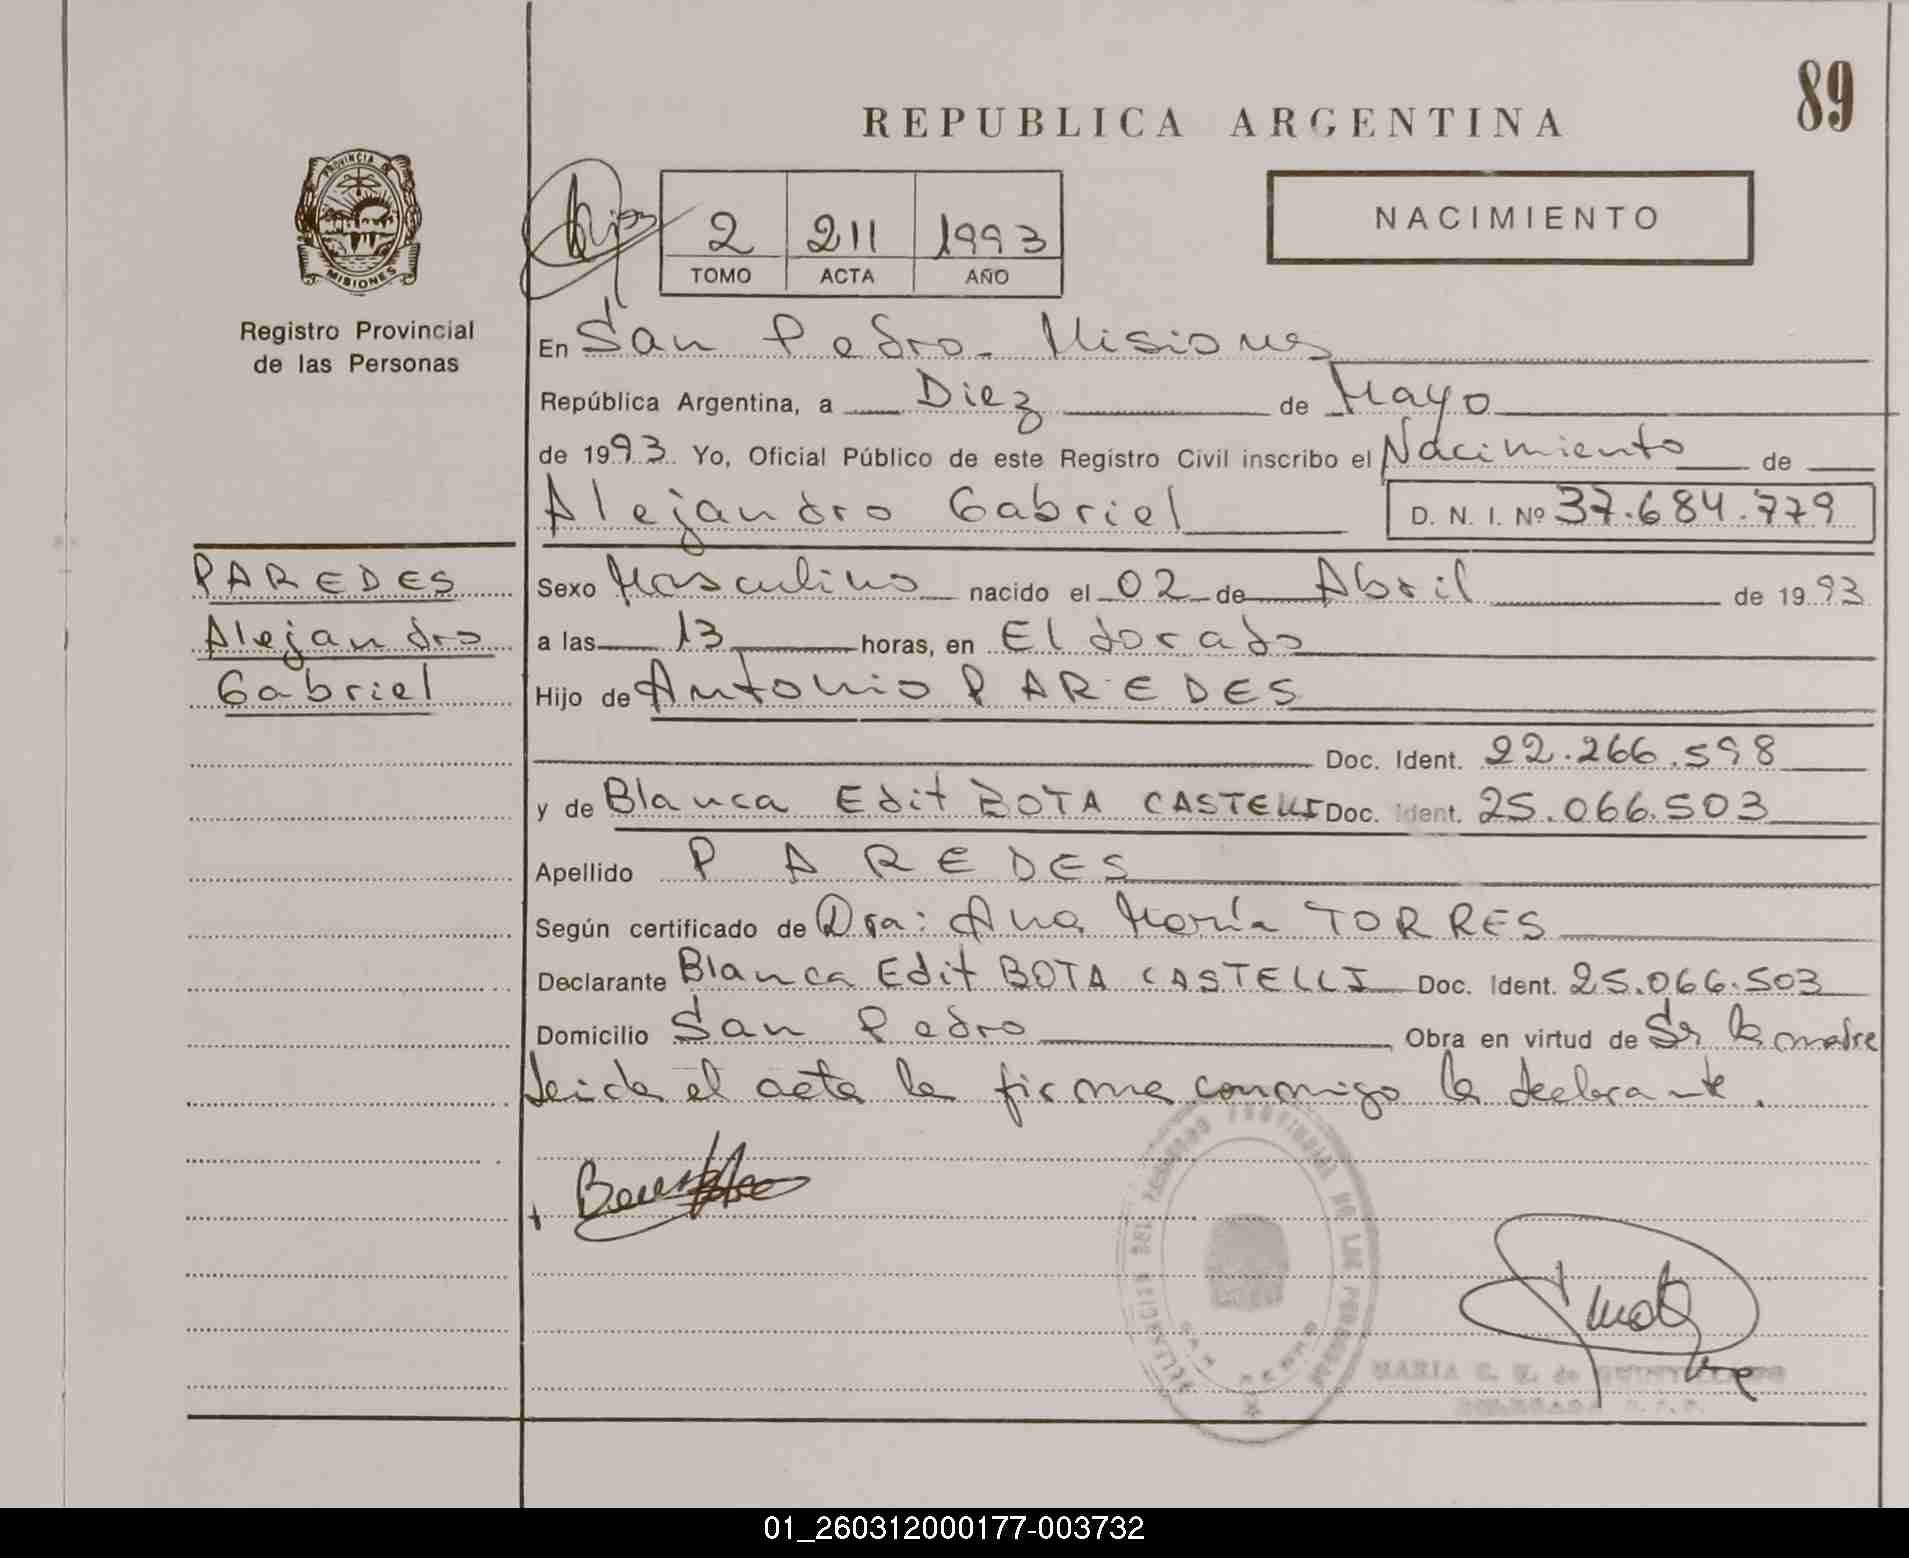 89
REPUBLICA ARGENTINA
PROVINCIA DE
MISIONES
Registro Provincial
de las Personas
NACIMIENTO
2 211 1993
TOMO ACTA AÑO
En San Pedro - Misiones
República Argentina, a Diez de Mayo
de 1993 Yo, Oficial Público de este Registro Civil inscribo el Nacimiento de
Alejandro Gabriel D. N. I. Nº 37.684.779
PAREDES
Alejandro
Gabriel
Sexo Masculino nacido el 02 de Abril de 1993
a las 13 horas, en Eldorado
Hijo de Antonio PAREDES
Doc. Ident. 22.266.598
y de Blanca Edit BOTA CASTELLI Doc. Ident. 25.066.503
Apellido PAREDES
Según certificado de Dra: Ana María TORRES
Declarante Blanca Edit BOTA CASTELLI Doc. Ident. 25.066.503
Domicilio San Pedro Obra en virtud de Ser la madre
Leida el acta la firma conmigo la declarante.
DELEGACION DEL REGISTRO PROVINCIAL DE LAS PERSONAS
SAN PEDRO
MARIA
01_260312000177-003732